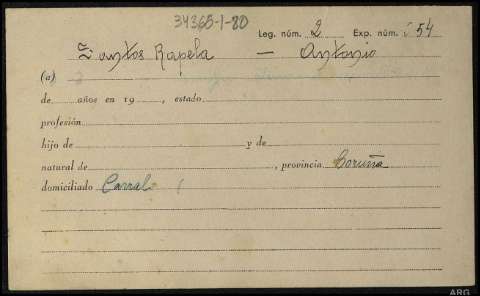 34365-1-80
Leg. núm. 2 Exp. núm. 54
Santos Rapela — Antonio
(a)
de años en 19 , estado
profesión
hijo de y de
natural de , provincia Coruña
domiciliado Carral
ARG